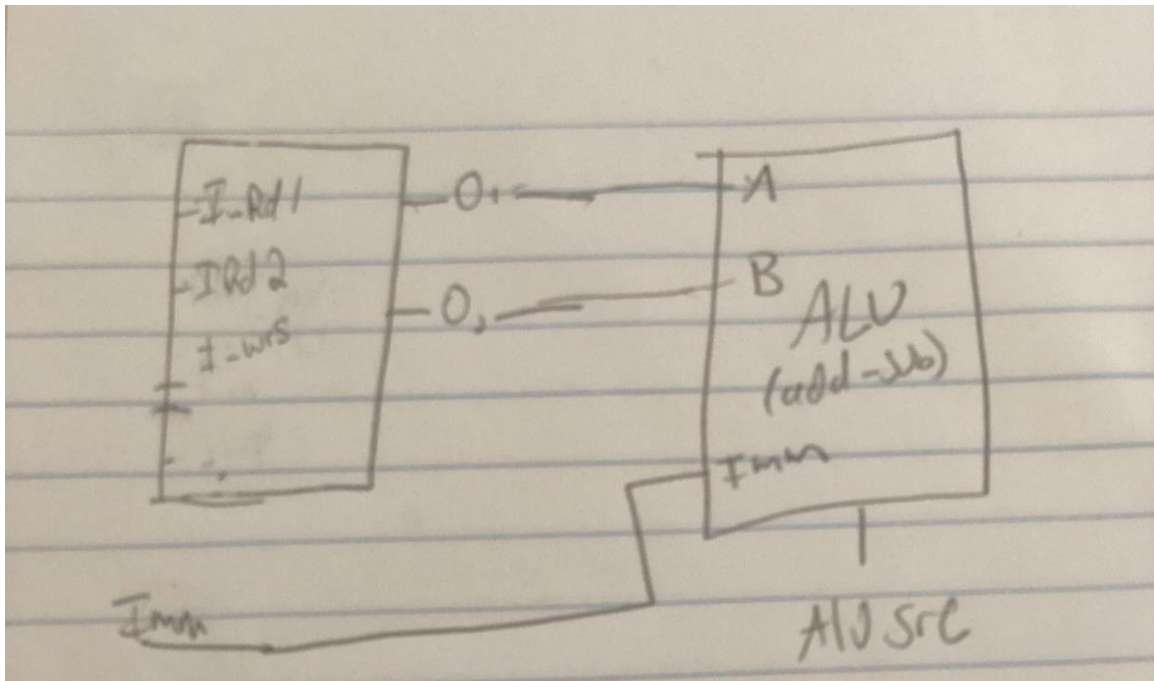 I-Rd1
IRd2
I-wrs
O1
O2
A
B
ALU
(add-sub)
Imm
Imm
ALU Src